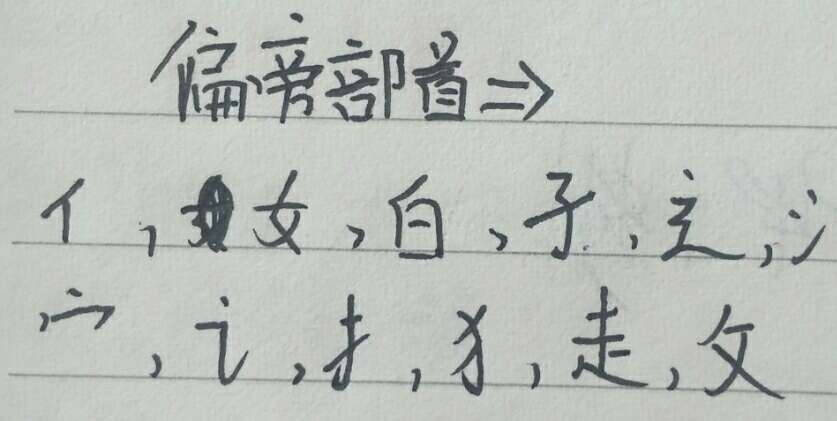 偏旁部首⇒
亻,女,白,子,辶,氵
,宀,讠,扌,犭,走,攵